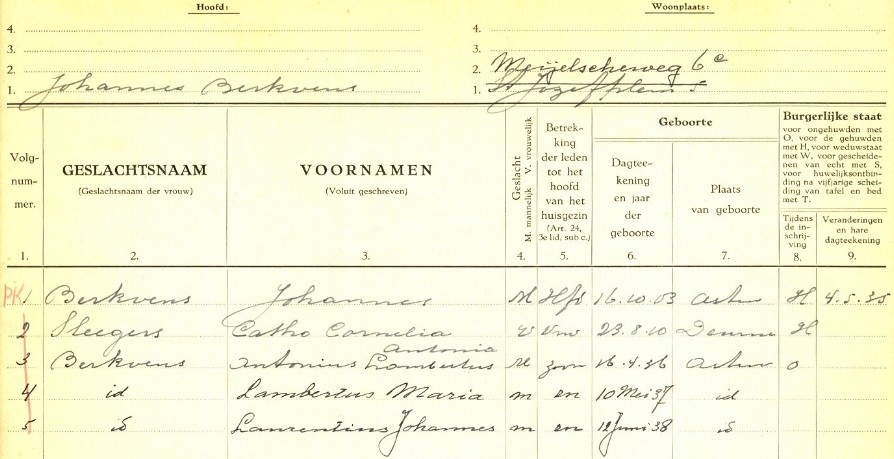 Hoofd:
Woonplaats:
4. 4.
3. 3.
2. 2. Meijelscheweg 6c
1. Johannes Berkvens 1. St Jozefplein 5
Volg-
num-
mer.
GESLACHTSNAAM
(Geslachtsnaam der vrouw)
VOORNAMEN
(Voluit geschreven)
Geslacht
M. mannelijk V. vrouwelijk
Betrek-
king
der leden
tot het
hoofd
van het
huisgezin
(Art. 24,
3e lid, sub c.)
Geboorte
Dagtee-
kening
en jaar
der
geboorte
Plaats
van geboorte
Burgerlijke staat
voor ongehuwden met
O, voor de gehuwden
met H, voor weduwstaat
met W, voor gescheide-
nen van echt met S,
voor huwelijksontbin-
ding na vijfjarige schei-
ding van tafel en bed
met T.
Tijdens
de in-
schrij-
ving
Veranderingen
en hare
dagteekening
1. 2. 3. 4. 5. 6. 7. 8. 9.
PK 1 Berkvens Johannes M Hfd 16.10.03 Asten H 4.5.35
2 Sleegers Catho Cornelia V Vrw 23.8.10 Deurne H
Antonia
3 Berkvens Antonius Lambertus M zoon 16.4.36 Asten O
4 id Lambertus Maria m en 10 Mei 37 id
5 id Laurentius Johannes m en 12 Juni 38 id